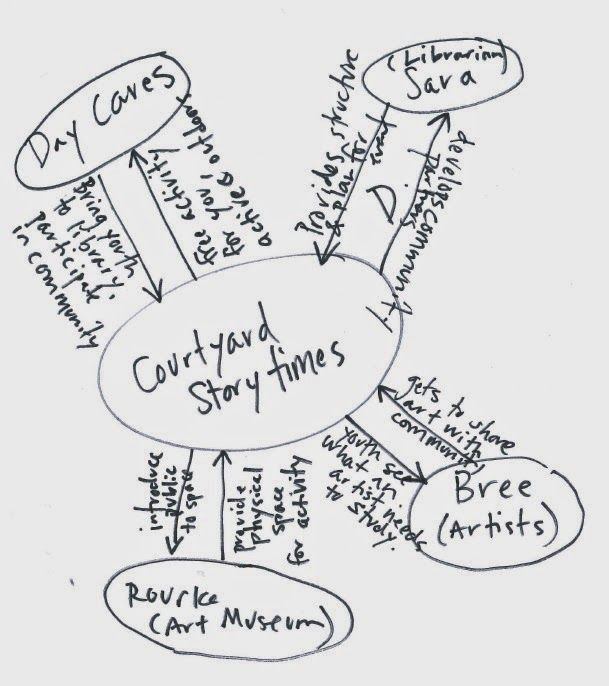 Day Cares
Bring youth
to Library,
participate
in community
free activity
for youth
active outdoors
(Librarian)
Sara
Provides structure
& plan for event
develops community
partners
Courtyard
Storytimes
gets to share
art with
community
youth see
what an
artist needs
to study.
Bree
(Artists)
introduce
public
to space
provide
physical
space
for activity
Rourke
(Art Museum)